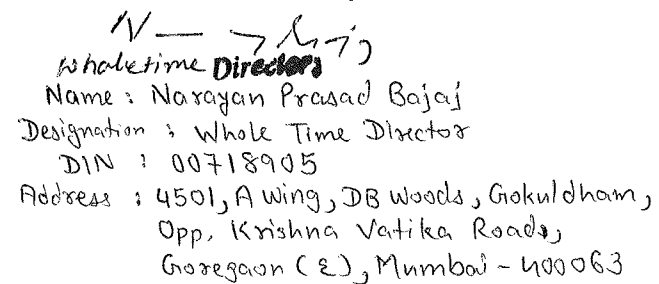 Wholetime Director
Name : Narayan Prasad Bajaj
Designation : Whole Time Director
DIN : 00718905
Address : 4501, A Wing, DB Woods, Gokuldham,
Opp. Krishna Vatika Road,
Goregaon (E), Mumbai - 400063